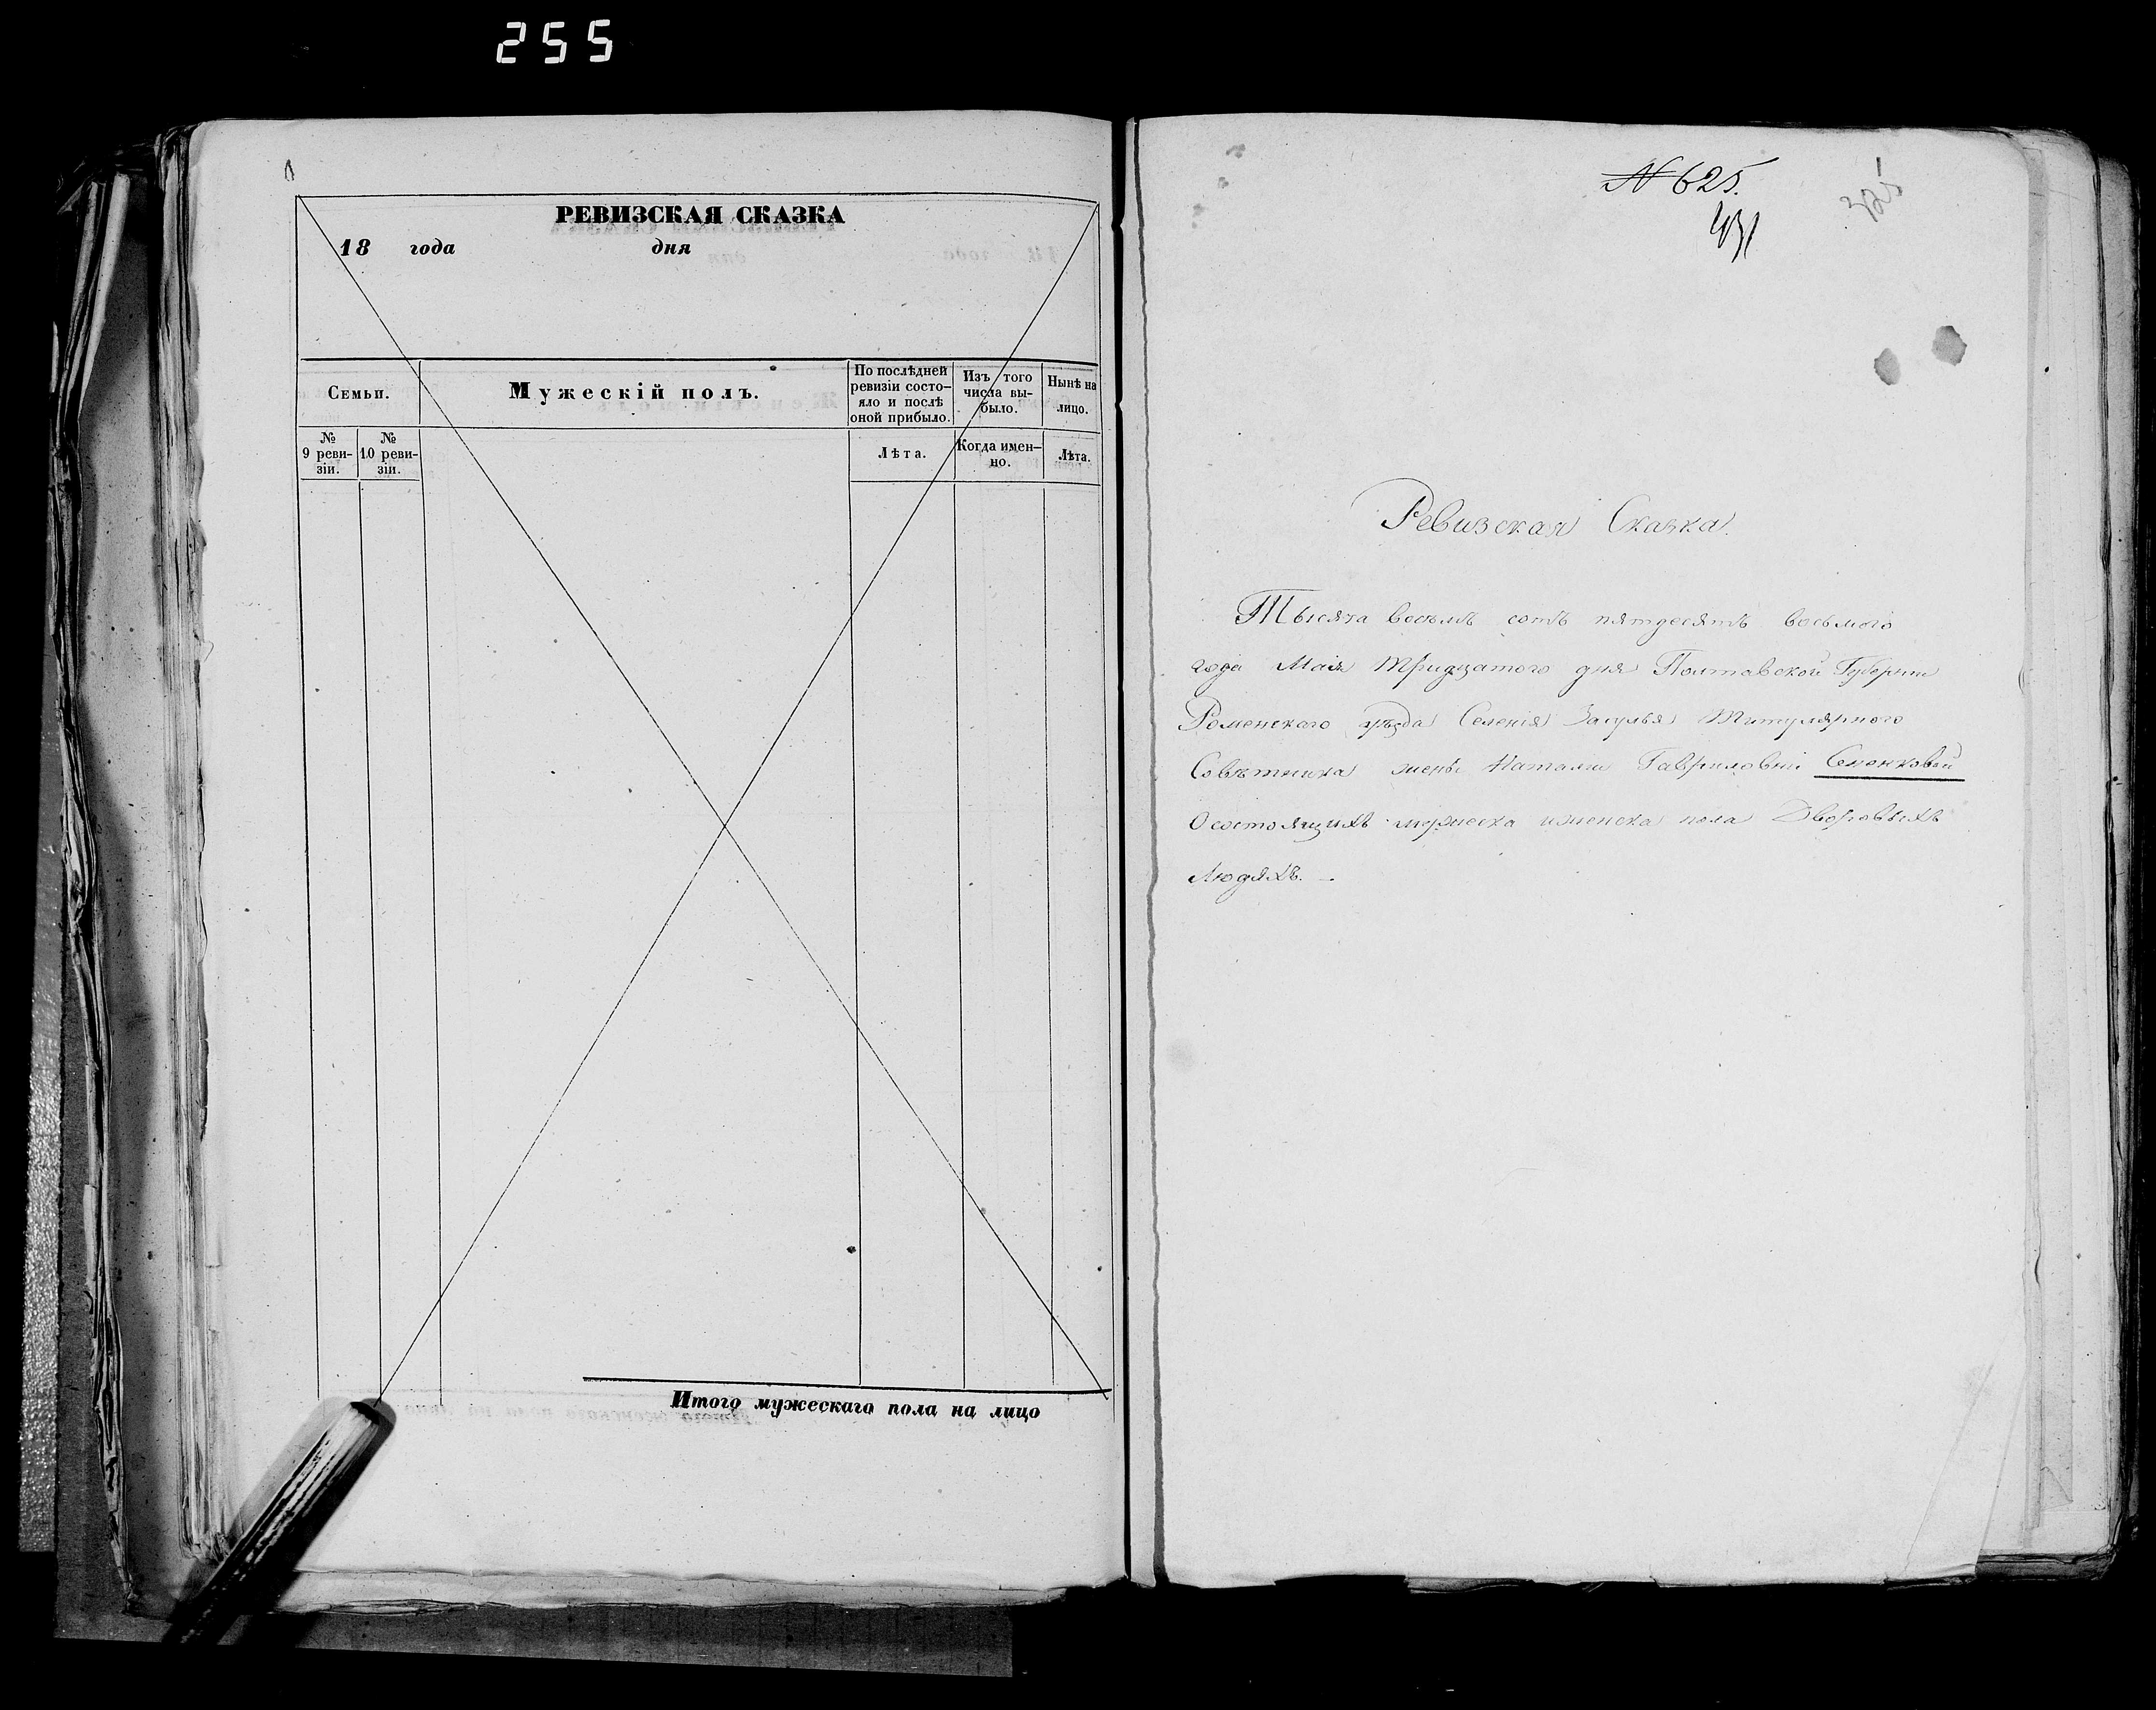 255
РЕВИЗСКАЯ СКАЗКА
18 года дня
Семьи.
Мужескій полъ.
По послѣдней ревизіи состо-
яло и послѣ оной прибыло.
Изъ того числа вы-
было.
Нынѣ на лицо.
№ 9 реви-
зіи.
№ 10 реви-
зіи.
Лѣта.
Когда имен-
но.
Лѣта.
Итого мужескаго пола на лицо
№ 625.
431
325
Ревизская Сказка.
Тысяча восемь сотъ пятдесятъ восьмого
года Мая тридцатого дня Полтавской Губерніи
Роменскаго уѣзда Селенія Засулья Титулярного
Совѣтника жены Наталіи Гавриловны Сенковой
О состоящихъ мужеска и женска пола Дворовыхъ
Людяхъ. —